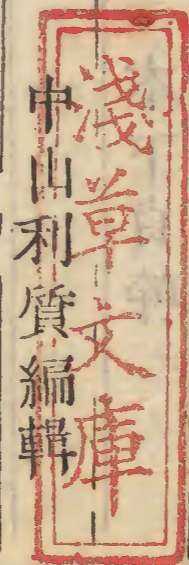 淺草文庫
中山利質編輯